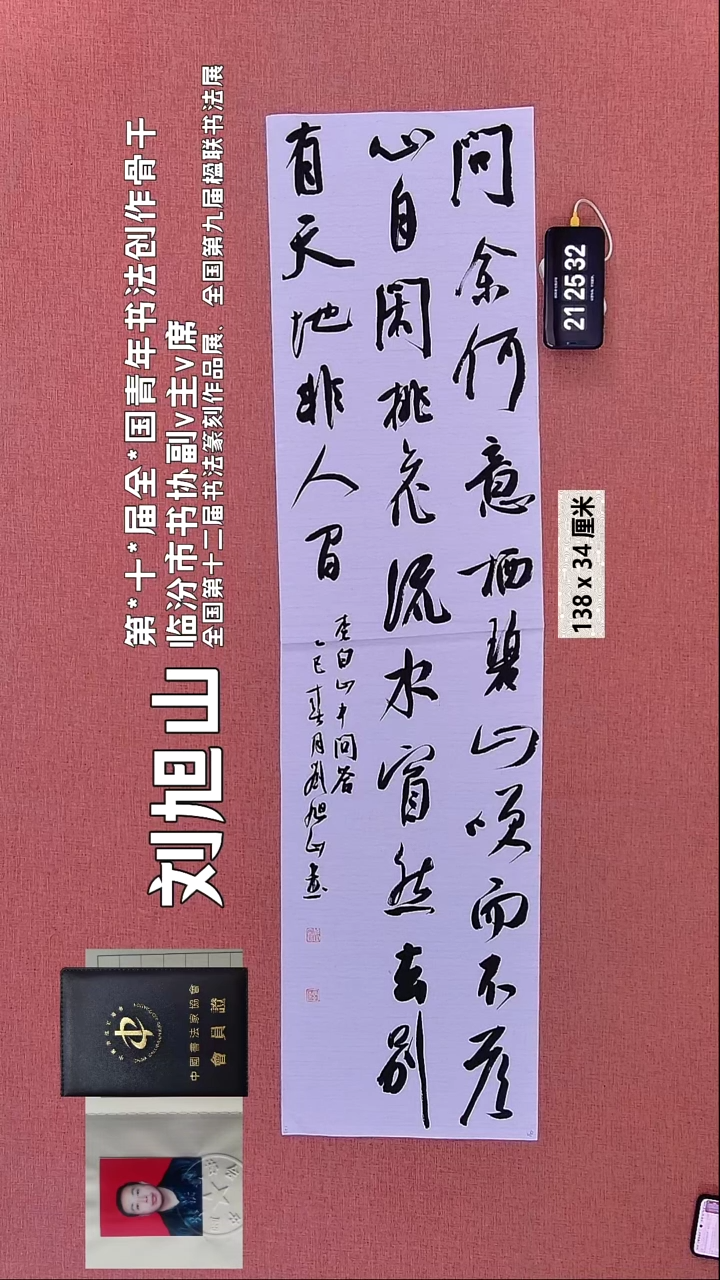 問余何意栖碧山咲而不應
心自閑桃花流水窅然去別
有天地非人間
李白山中問答
乙巳春月劉旭山書
第*十*届全*国青年书法创作骨干
临汾市书协副v主v席
全国第十二届书法篆刻作品展、全国第九届楹联书法展
刘旭山
中國書法家協會
會員證
21 25 32
138 x 34 厘米